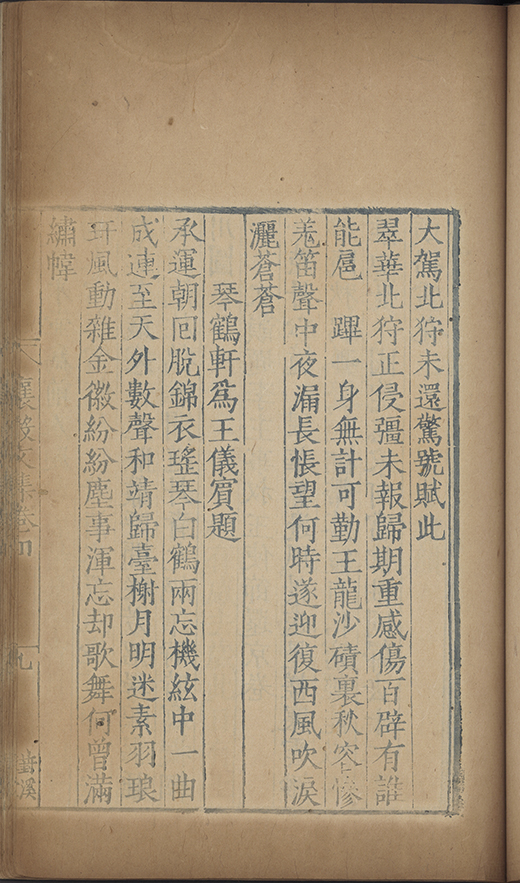 大駕北狩未還驚號賦此
翠華北狩正侵彊未報歸期重感傷百辟有誰
能扈蹕一身無計可勤王龍沙磧裏秋容慘
羗笛聲中夜漏長悵望何時遂迎復西風吹淚
灑蒼蒼
琴鶴軒爲王儀賓題
承運朝回脫錦衣瑤琴白鶴兩忘機絃中一曲
成連至天外數聲和靖歸臺榭月明迷素羽琅
玕風動雜金徽紛紛塵事渾忘却歌舞何曾滿
繡幃
襄毅文集卷四
九